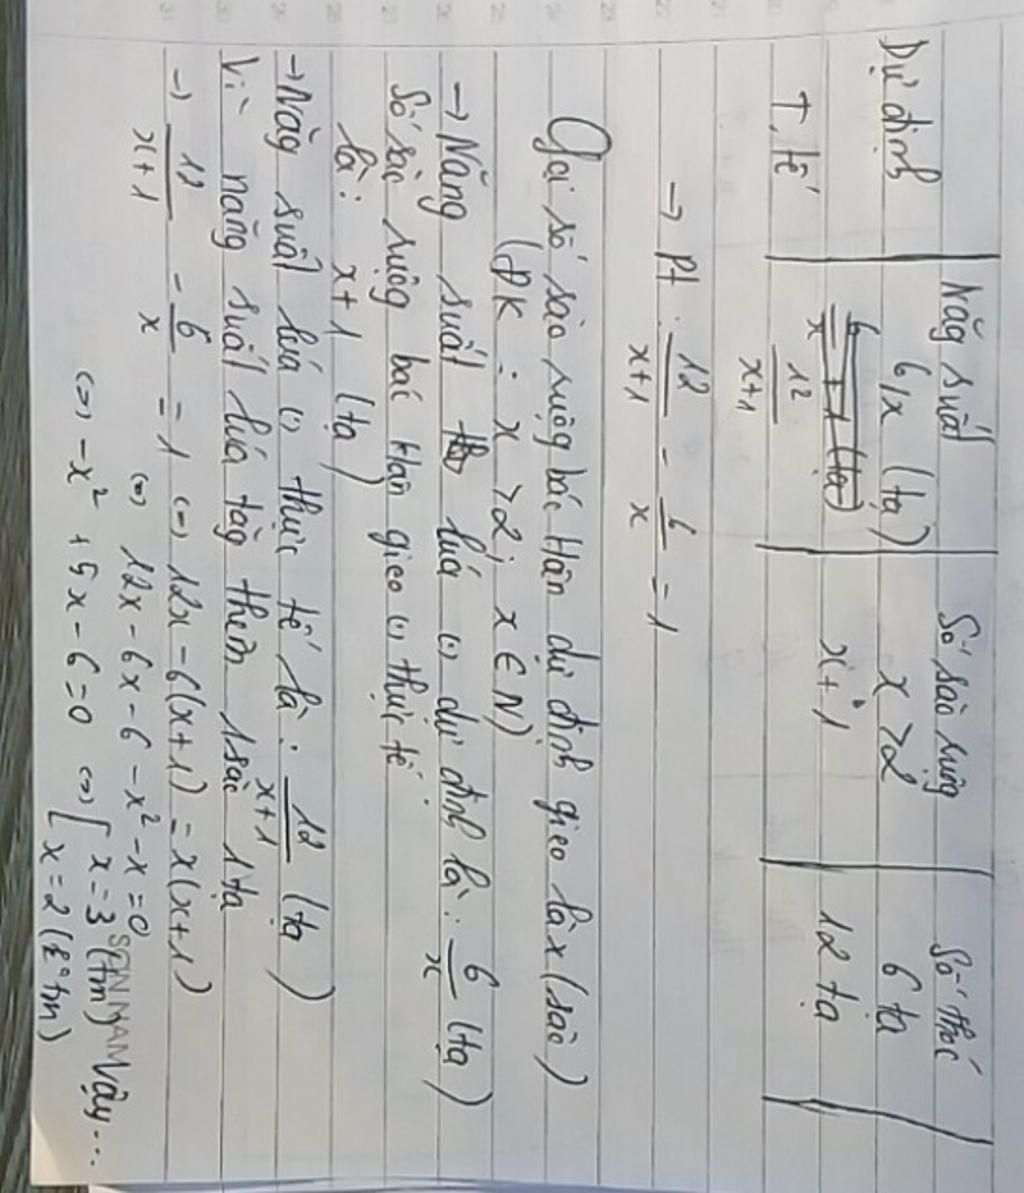 Năg suất Số sào ruộg Số thóc
Dự định 6/x (tạ) x >2 6 tạ
T. tế 6/x + 1 (tạ) 12/x+1 x + 1 12 tạ
→ Pt : 12/x+1 - 6/x = 1
Gọi số sào ruộg bác Hân dự định gieo là x (sào)
(ĐK : x >2; x ∈ N)
→ Năng suất lúa (1) dự định là : 6/x (tạ)
Số sào ruộg bác Hân gieo (1) thực tế
là : x + 1 (tạ)
→ Năg suất lúa (1) thực tế là : 12/x+1 (tạ)
Vì năng suất lúa tăg thêm 1sào 1 tạ
→ 12/x+1 - 6/x = 1 (=) 12x - 6(x+1) = x(x+1)
(=) 12x - 6x - 6 - x² - x = 0
(=) -x² + 5x - 6 = 0 (=) [ x = 3 (tm) Vậy...
x = 2 (k° tm)
SƠN NAM
22 23 24 25 26 27 28 29 30 31